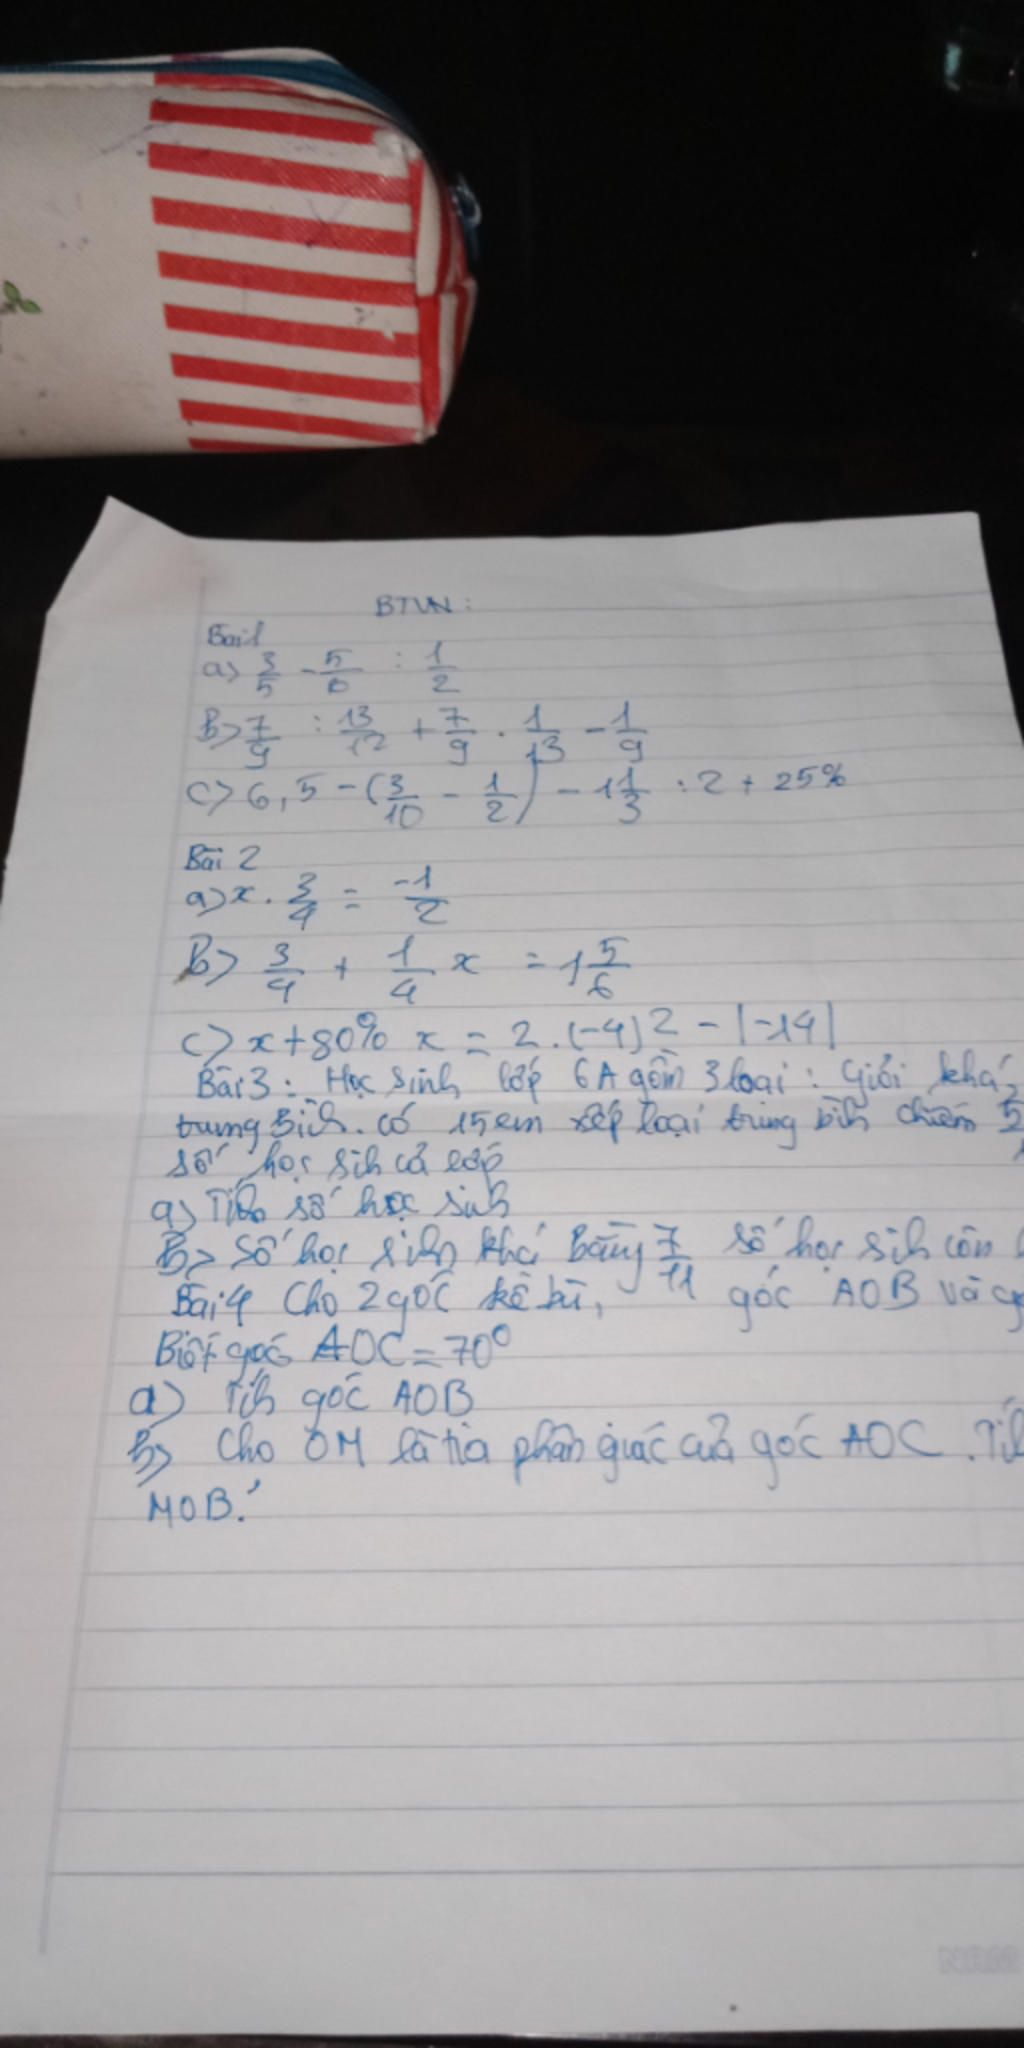 BTVN:
Bài 1
a> 3/5 - 5/6 : 1/2
B> 7/9 : 13/12 + 7/9 . 1/13 - 1/9
c> 6,5 - (3/10 - 1/2) - 1 1/3 : 2 + 25%
Bài 2
a> x . 3/4 = -1/2
B> 3/4 + 1/4 x = 1 5/6
c> x + 80% x = 2 . (-4)2 - |-14|
Bài 3: Học sinh lớp 6A gồm 3 loại: Giỏi khá,
trung bình. có 15 em xếp loại trung bình chiếm 5
số học sinh cả lớp
a) Tính số học sinh
B> Số học sinh khá Bằng 7/11 số học sinh còn
Bài 4 Cho 2 góc kề bù, góc AOB và
Biết góc AOC = 70°
a) Tính góc AOB
b> Cho OM là tia phân giác của góc AOC.
MOB.